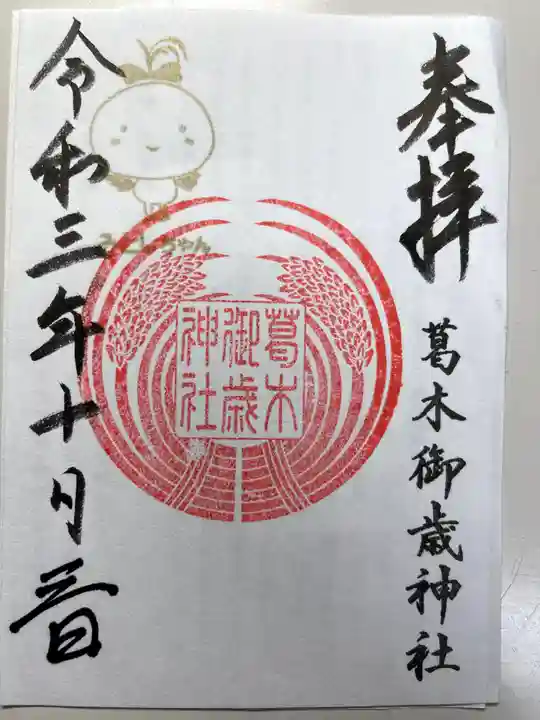 奉拝
葛木御歳神社
葛木
御歳
神社
みとしちゃん
令和三年十月三日